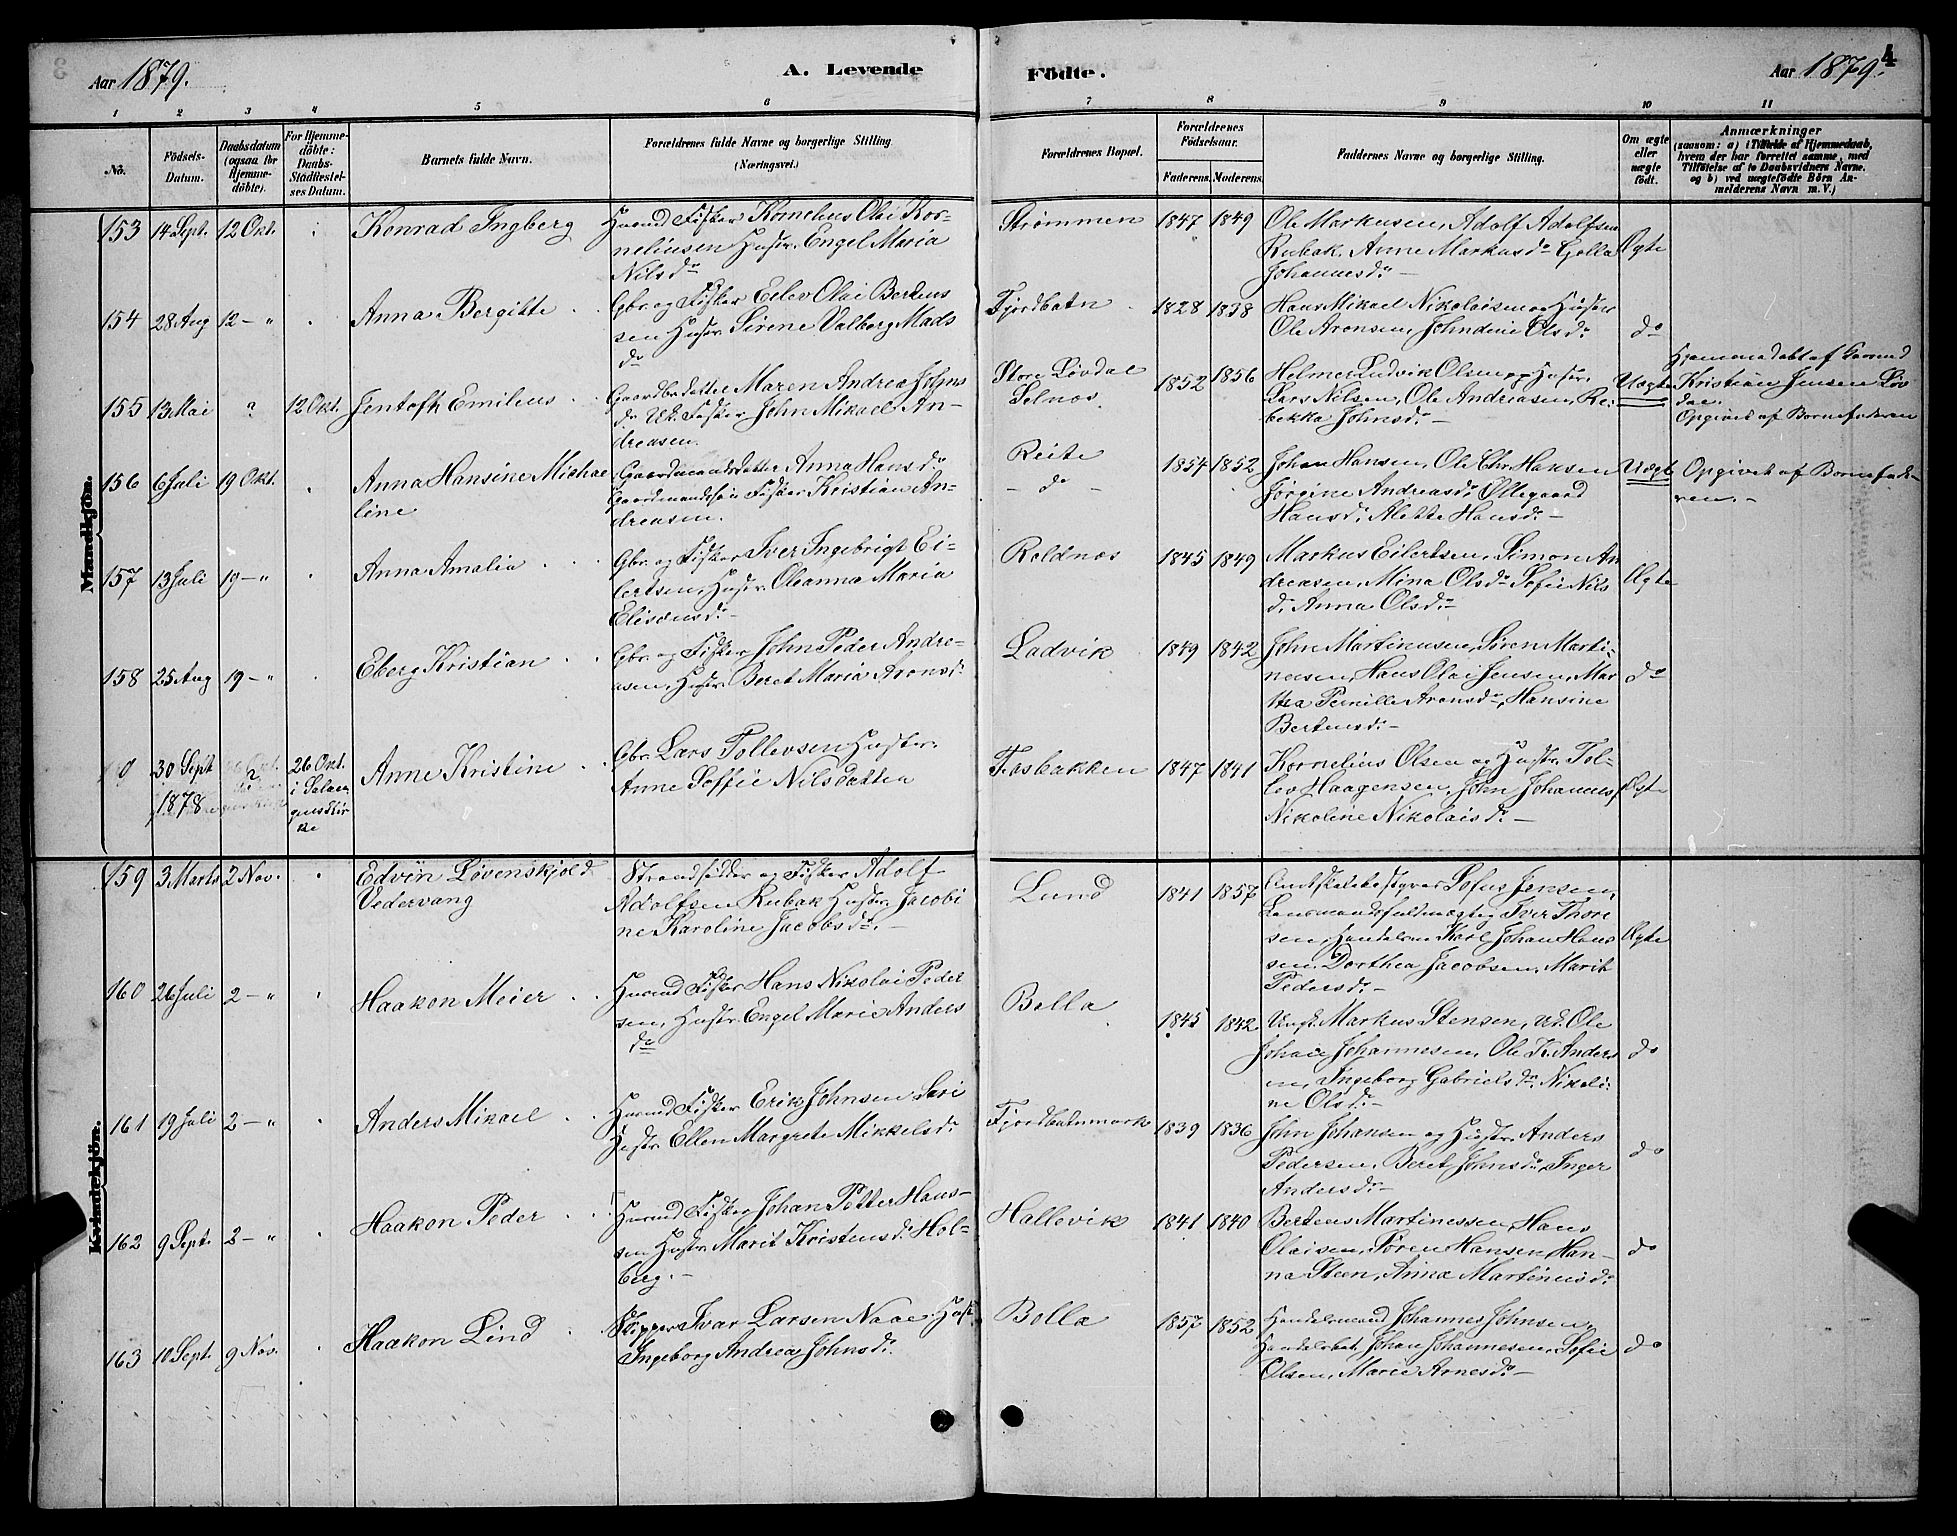 Aar 1879.
A. Levende
Födte.
Aar 1879.
4
1 2 3 4 5 6 7 8 9 10 11
No.
Födsels-
Datum.
Daabsdatum
(ogsaa for
Hjemme-
döbte).
For Hjemme-
döbte:
Daabs-
Stadfæstel-
ses Datum.
Barnets fulde Navn.
Forældrenes fulde Navne og borgerlige Stilling
(Næringsvei.)
Forældrenes Bopæl.
Forældrenes
Födselsaar.
Faderens. Moderens.
Faddernes Navne og borgerlige Stilling.
Om ægte
eller
uægte
födt.
Anmærkninger
(saasom: a) i Tilfælde af Hjemmedaab,
hvem der har forrettet samme, med
Tilföielse af to Daabsvidners Navne,
og b) ved uægtefödte Börn An-
melderens Navn m. V.)
Mandkjön.
153 14 Sept. 12 Okt. Konrad Ingberg
Husmd Fisker Kornelius Olai Kor-
neliussen Hustr. Engel Maria
Nilsdr
Strømmen 1847 1849
Ole Markusen, Adolf Adolfsen
Rubak, Anne Markusdr Golla
Johannesdr –
Ægte
154 28 Aug 12 – " Anna Bergitte
Gbr. og Fisker Eilev Olai Bertens
sen Hustr. Sirene Valborg Mads
dr
Fjordbotn 1828 1838
Hans Mikael Nikolaisen og Hustru
Ole Aronsen, Johndine Olsdr
do
155 13 Mai " 12 Okt. Jentoft Emilius
Gaardbr.datter Maren Andrea Johns
dr. Uk. Fisker John Mikael An-
dreasen.
Store Løvdal
Selnæs 1852 1856
Helmer Ludvik Olsen og Hustr.
Lars Nilsen, Ole Andreasen, Re-
bekka Johnsdr –
Uægte
Hjemmedøbt af Gaarmd
Kristian Jensen Løv
dal.
Opgivet af Barnefaderen
156 6 Juli 19 Okt. Anna Hansine Michae
line
Gaardmandsdatter Anna Hansdr
Gaardmandssøn Fisker Kristian An-
dreasen.
Reite
– do – 1854 1852
Johan Hansen, Ole Chr. Hansen
Jørgine Andreasdr Ollegaard
Hansdr. Alette Hansdr –
Uægte
Opgivet af Barnefade-
ren. –
157 13 Juli 19 – " Anna Amalia
Gbr. og Fisker Iver Ingebrigt Ei-
lertsen, Hustr. Oleanna Maria
Eliseusdr –
Roldnæs 1845 1849
Markus Eilertsen, Simon An
dreasen, Mina Olsdr Sofie Nils
dr. Anna Olsdr –
Ægte
158 25 Aug 19 – " Eberg Kristian
Gbr. og Fisker John Peder Andre-
asen, Hustr. Beret Maria Aronsdr.
Ladvik 1849 1842
John Martinusen, Søren Marti-
neusen, Hans Olai Jensen, Mar
tha Pernille Aronsdr, Hansine
Bertensdr –
do
0 30 Sept
1878
26 Okt.
i Salan-
gens Kir
ke
Anne Kristine
Gbr. Lars Tollevsen Hustr.
Anne Soffie Nilsdatter
Fosbakken 1847 1841
Kornelius Olsen og Hustr. Tol-
lev Haagensen, John Johannes
Nikoline Nikolaisdr –
Ægte
Kvindekjön.
159 3 Marts 2 Nov. Edvin Løvenskjold
Vedervang
Strandsidder og Fisker Adolf
Adolfsen Rubak Hustr. Jacobi
ne Karoline Jacobsdr. –
Lund 1841 1857
Amtskolebestyrer Sofus Jensen,
Lensmandsfuldmægtig Iver Thore
sen, Handelsm Karl Johan Hans
sen, Dorthea Jacobsen, Marit
Pedersdr –
Ægte
160 26 Juli 2 – " Haakon Meier
Husmd Fisker Hans Nikolai Peder
sen, Hustr. Engel Marie Anders
dr
Bolla 1845 1842
Ungk. Markus Stensen, Uk. Ole
Johan Johannesen, Ole K. Anders
en, Ingeborg Gabrielsdr, Nikoli-
ne Olsdr –
do
161 19 Juli 2 – " Anders Mikael
Husmd Fisker Erik Johnsen Sari
Hustr. Ellen Margrete Mikkelsdr
Fjordbotnmark 1839 1836
John Johansen og Hustr. Anders
Pedersen, Beret Johnsdr, Inger
Andersdr –
do
162 9 Sept. 2 – " Haakon Peder
Husmd Fisker Johan Petter Hans-
sen Hustr. Marit Kristensdr Hol-
berg. –
Hallevik 1841 1840
Bertens Martinessen, Hans
Olaisen, Søren Hansen, Han-
na Steen, Anna Martinusdr
do
163 10 Sept. 9 Nov. Haakon Lind
Skipper Ivar Larsen Naae Hust
Ingeborg Andrea Johnsdr.
Bolla 1857 1852
Handelsmand Johannes Johnsen,
Handelsbet. Johan Johannesen, Sofie
Olsen, Marie Arnesdr –
do